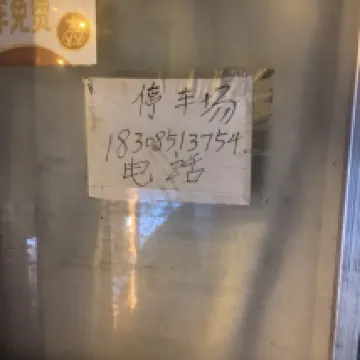 免费
停车场
18308513754
电话